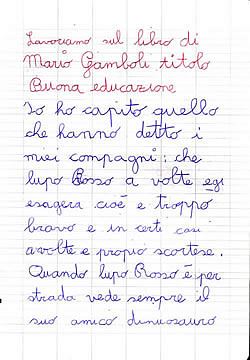 Lavoriamo sul libro di
Mario Gamboli titolo
Buona educazione
Io ho capito quello
che hanno detto i
miei compagni: che
lupo Rosso a volte egi
esagera cioè e troppo
bravo e in certi casi
avolte e propio scortese.
Quando lupo Rosso è per
strada vede sempre il
suo amico dinuosauro